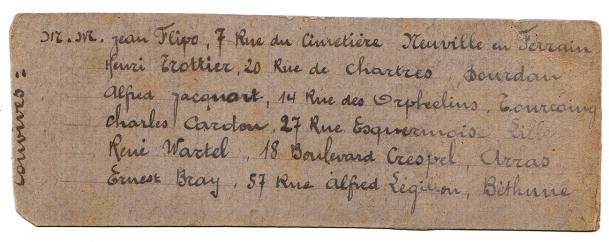 Convives:
M.M. Jean Flipo, 7 Rue du Cimetière Neuville en Ferrain
Henri Trottier, 20 Rue de Chartres, Dourdan
Alfred Jacquart, 14 Rue des Orphelins, Tourcoing
Charles Cardon, 27 Rue Esquermoise Lille
René Wartel, 18 Boulevard Crespel, Arras
Ernest Bray, 57 Rue Alfred Légillon, Béthune